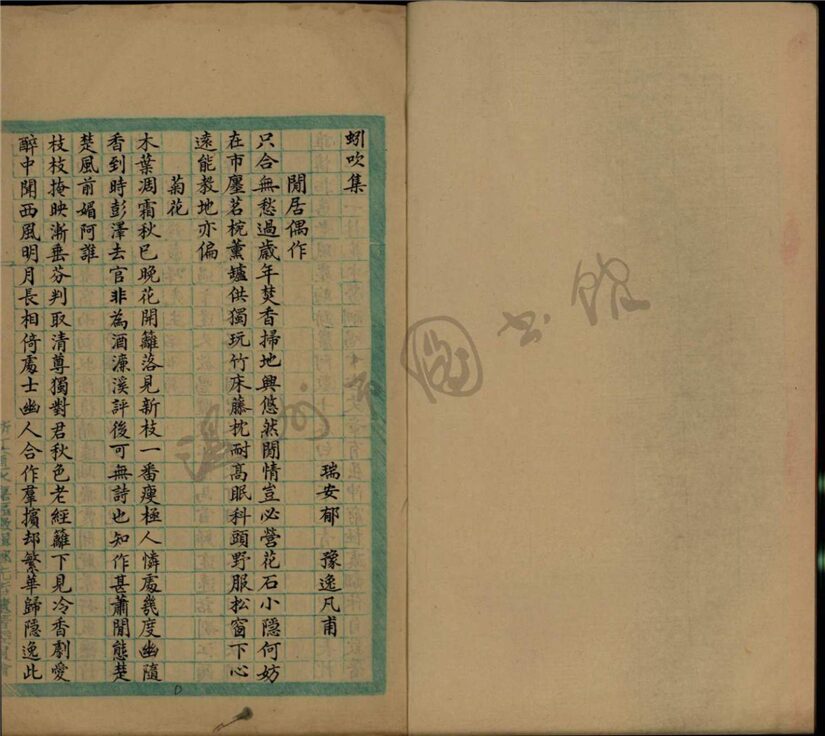 蚓吹集
瑞安郁豫逸凡甫
閒居偶作
只合無愁過歲年焚香掃地興悠然閒情豈必營花石小隱何妨
在市廛茗椀薰罏供獨玩竹床藤枕耐高眠科頭野服松窗下心
遠能教地亦偏
菊花
木葉凋霜秋已晚花開籬落見新枝一番瘦極人憐處幾度幽隨
香到時彭澤去官非為酒濂溪評後可無詩也知作甚蕭閒態楚
楚風前媚阿誰
枝枝掩映漸垂芬判取清尊獨對君秋色老經籬下見冷香劇愛
醉中聞西風明月長相倚處士幽人合作羣擯却繁華歸隱逸此
溫州市圖書館